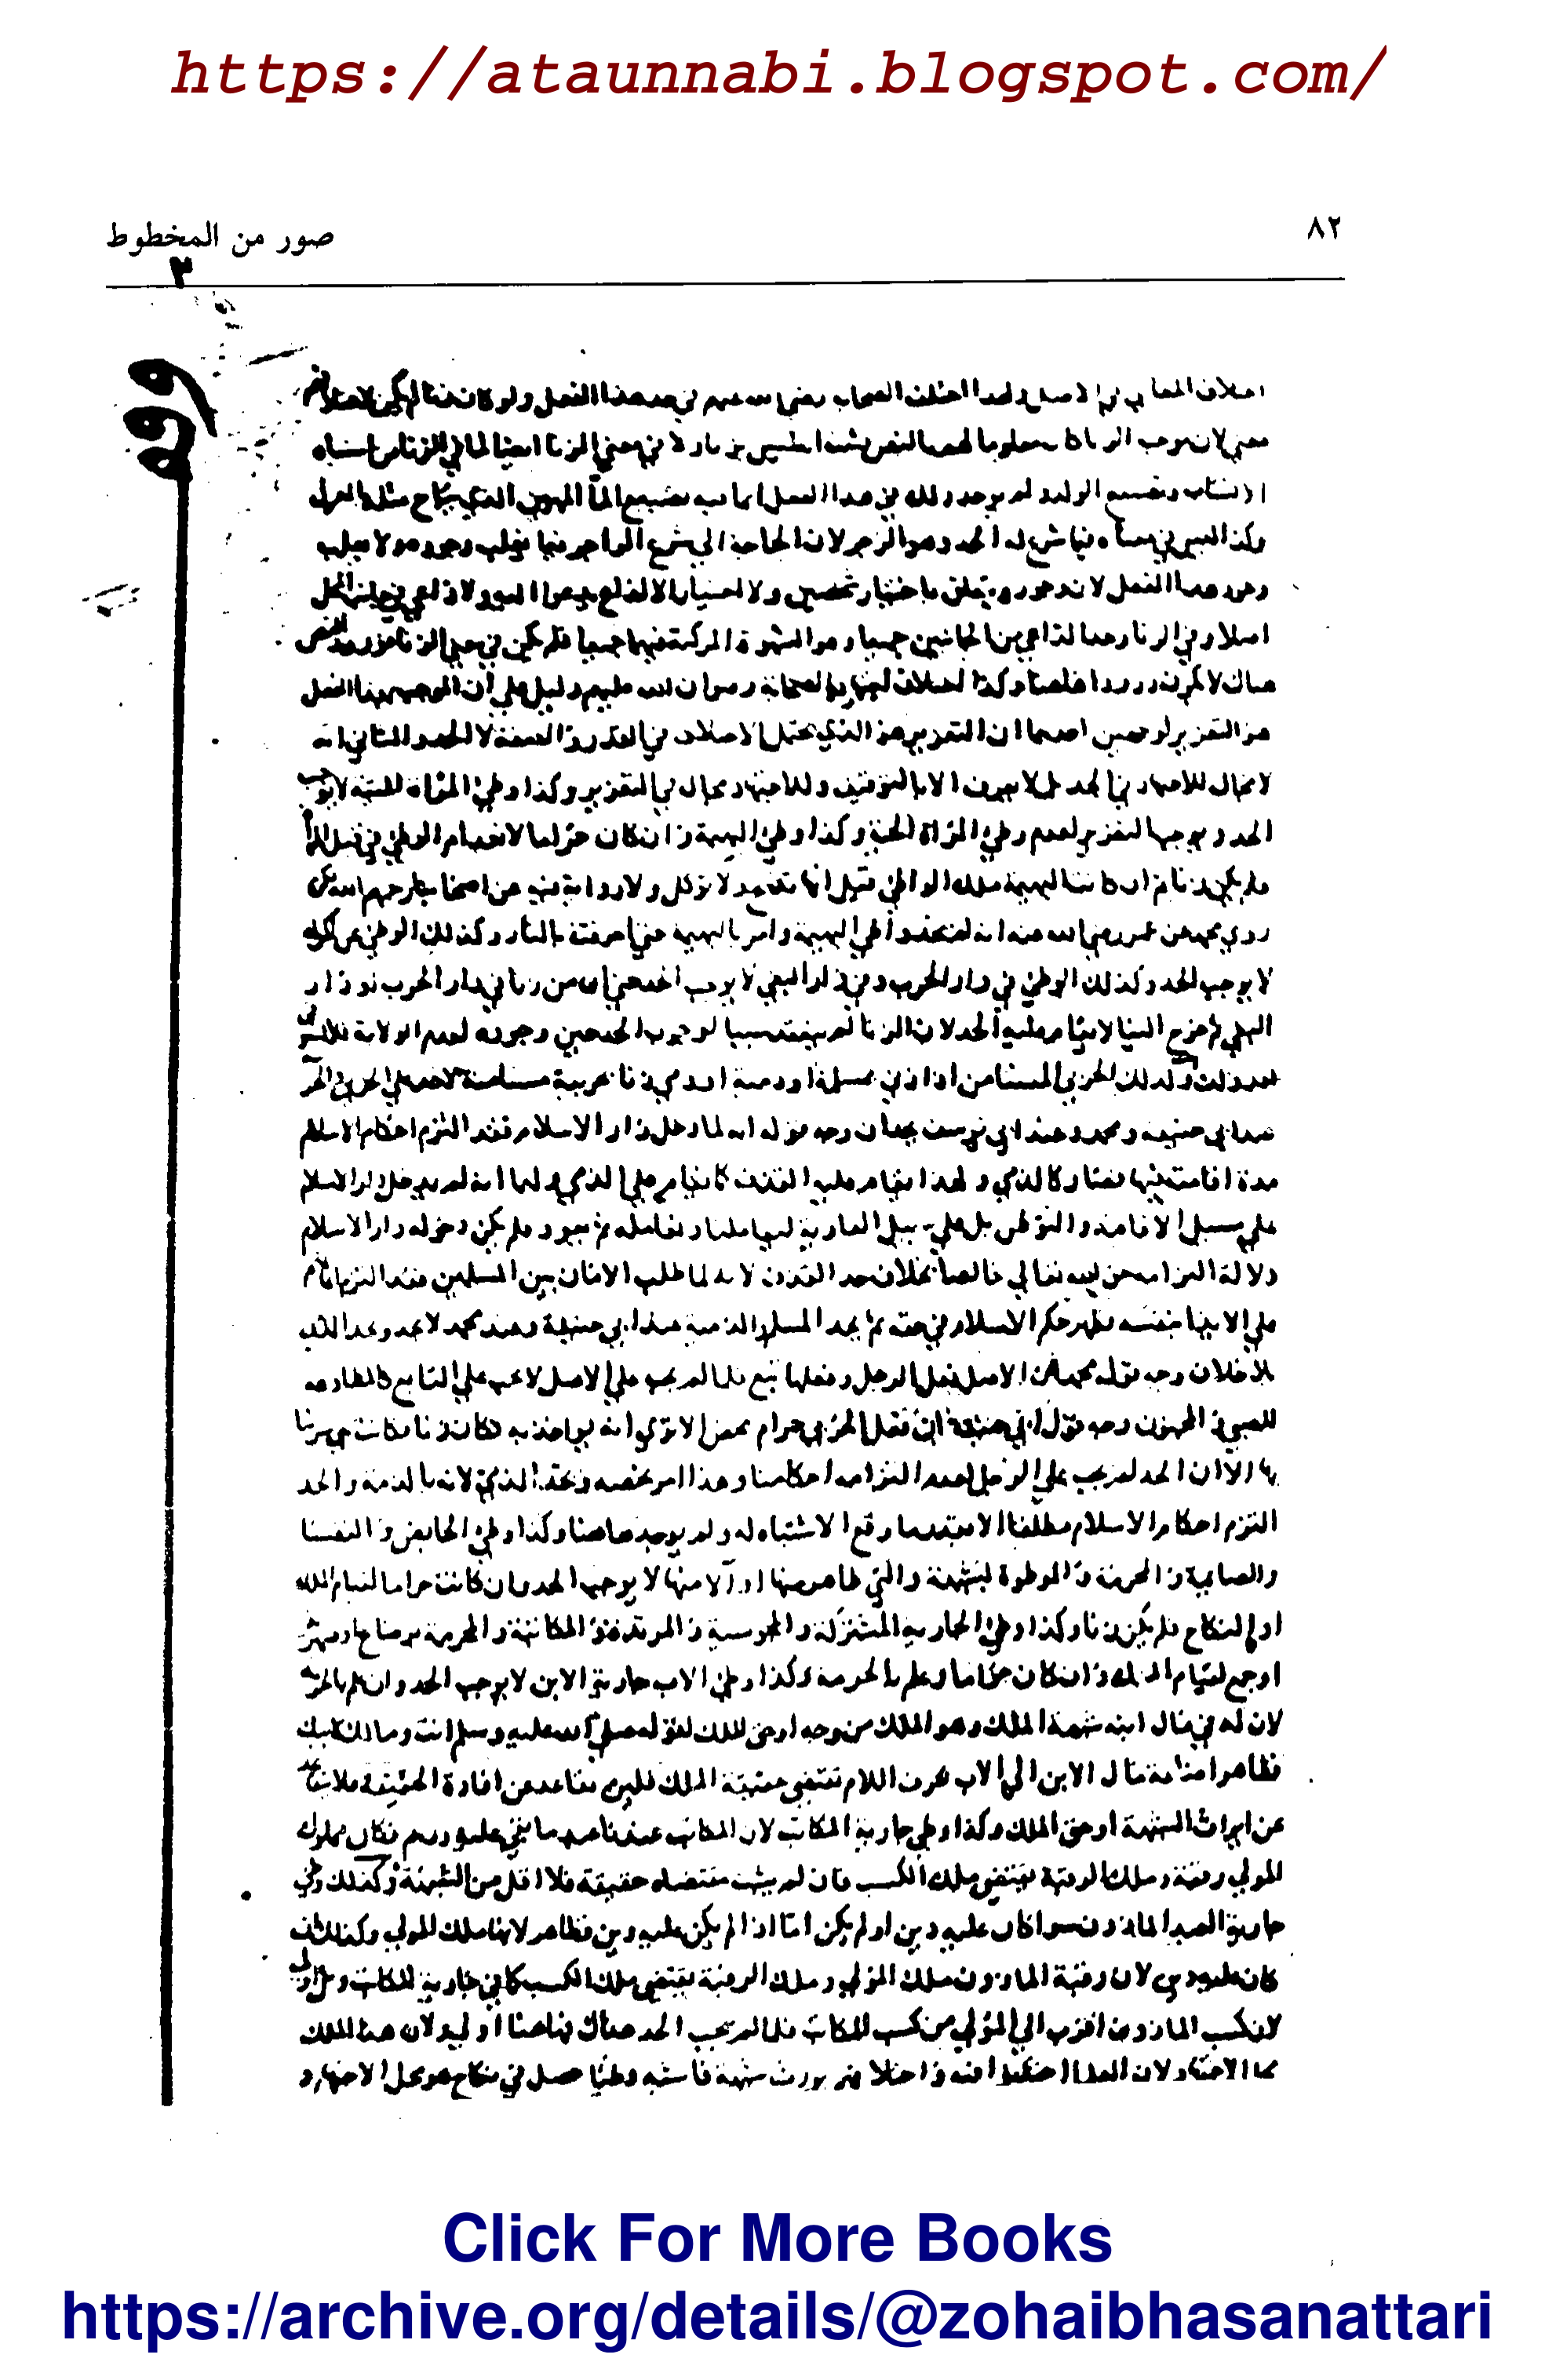 https://ataunnabi.blogspot.com/
٨٢
صور من المخطوط
اختلاف المعاني في الاصل ولهذا اختلف الصحابة رضي الله عنهم في حد هذا الفعل ولو كان هذا زنا لم يكن لاختلافهم
معنى لان موجب الزنا كان معلوما لهم بالنص فثبت انه ليس بزنا ولا في معنى الزنا ايضا لما في الزنا من اشتباه
الانساب وتضييع الولد ولم يوجد ذلك في هذا الفعل انما فيه تضييع الماء المهين الذي يباح مثله بالعزل
وكذا ليس في معناه فيما شرع له الحد وهو الزجر لان الحاجة الى شرع الزاجر فيما يغلب وجوده ولا يغلب
وجود هذا الفعل لان وجوده يتعلق باختيار شخصين ولا اختيار الا لداع يدعو اليه ولا داعي في جانب المحل
اصلا وفي الزنا وجد الداعي من الجانبين جميعا وهو الشهوة المركبة فيهما جميعا فلم يكن في معنى الزنا فورود النص
هناك لا يكون ورودا هاهنا وكذا اختلاف اجتهاد الصحابة رضوان الله عليهم دليل على ان الموجب بهذا الفعل
هو التعزير لوجهين احدهما ان التعزير هو الذي يحتمل الاختلاف في القدر والصفة لا الحد والثاني انه
لا مجال للاجتهاد في الحد بل لا يعرف الا بالتوقيف وللاجتهاد مجال في التعزير وكذا وطئ المراة الميتة لا يوجب
الحد ويوجب التعزير لعدم وطئ المراة الحية وكذا وطئ البهيمة وان كان حراما لانعدام الوطئ في قبل المراة
فلم يكن زنا ثم ان كانت البهيمة ملك الواطئ قيل انها تذبح ولا تؤكل ولا رواية فيه عن اصحابنا رحمهم الله لكن
روى محمد عن عمر رضي الله عنه انه لم يحد واطئ البهيمة وامر بالبهيمة حتى احرقت بالنار وكذلك الوطئ عن كره
لا يوجب الحد وكذلك الوطئ في دار الحرب وفي دار البغي لا يوجب الحد حتى ان من زنا في دار الحرب او دار
البغي ثم خرج الينا لا يقام عليه الحد لان الزنا لم ينعقد سببا لوجوب الحد حين وجوده لعدم الولاية فلا يستوفى
بعد ذلك وكذلك الحربي المستامن اذا زنى بمسلمة او ذمية او ذمي زنا بحربية مستامنة لا حد على الحربي والحربية
عند ابي حنيفة ومحمد وعند ابي يوسف يحدان وجه قوله انه لما دخل دار الاسلام فقد التزم احكام الاسلام
مدة اقامته فيها فصار كالذمي ولهذا يقام عليه حد القذف كما يقام على الذمي ولهما انه لم يدخل دار الاسلام
على سبيل الاقامة والتوطن بل على سبيل العارية ليعاملنا ونعامله ثم يعود فلم يكن دخوله دار الاسلام
دلالة التزامه حق الله تعالى خالصا بخلاف حد القذف لانه لما طلب الامان من المسلمين فقد التزم امانهم
عن الايذاء بنفسه فظهر حكم الاسلام في حقه ثم يحد المسلم والذمية عند ابي حنيفة وعند محمد لا يحد وتحد الذمية
بلا خلاف وجه قول محمد ان الاصل فعل الرجل وفعلها يقع تبعا فلما لم يجب على الاصل لا يجب على التبع كالمطاوعة
للصبي والمجنون وجه قول ابي حنيفة ان فعل الحربي حرام محض الا ترى انه يؤاخذ به فكان زنا فكانت هي مزنيا
بها الا ان الحد لم يجب على الرجل لعدم التزامه احكامنا وهذا امر يخصه ويحد الذمي لانه بالذمة والحد
التزم احكام الاسلام مطلقا الا بقدر ما وقع الاستثناء له ولم يوجد هاهنا وكذا وطئ الحائض والنفساء
والصائمة والمحرمة والموطوءة بشبهة والتي ظاهر منها او آلى منها لا يوجب الحد وان كانت حراما لقيام الملك
او النكاح فلم يكن زنا وكذا وطئ الجارية المشتركة والمجوسية والمرتدة والمكاتبة والمحرمة برضاع او صهر
او جمع لقيام الملك وان كان حراما وعلم بالحرمة وكذا وطئ الاب جارية الابن لا يوجب الحد وان علم بالحرمة
لان له في مال ابنه شبهة الملك وهو الملك من وجه او حق الملك لقوله صلى الله عليه وسلم انت ومالك لابيك
فظاهر اضافة مال الابن الى الاب بحرف اللام يقتضي حقيقة الملك فلئن تقاعد عن افادة الحقيقة فلا يتقاعد
عن ايراث الشبهة او حق الملك وكذا وطئ جارية المكاتب لان المكاتب عندنا عبد ما بقي عليه درهم فكان مملوك
المولى رقبة وملك الرقبة يقتضي ملك الكسب فان لم يثبت مقتضاه حقيقة فلا اقل من الشبهة وكذلك وطئ
جارية العبد الماذون سواء كان عليه دين او لم يكن اما اذا لم يكن عليه دين فظاهر لانها ملك المولى وكذلك ان
كان عليه دين لان رقبة الماذون ملك المولى وملك الرقبة يقتضي ملك الكسب كما في جارية المكاتب وهو اولى
لان كسب الماذون اقرب الى المولى من كسب المكاتب فلما لم يجب الحد هناك فهاهنا اولى ولان هذا الملك
محل الاجتهاد لان العلماء اختلفوا فيه واختلافهم يورث شبهة فاشبه وطئا حصل في نكاح هو محل الاجتهاد و
Click For More Books
https://archive.org/details/@zohaibhasanattari